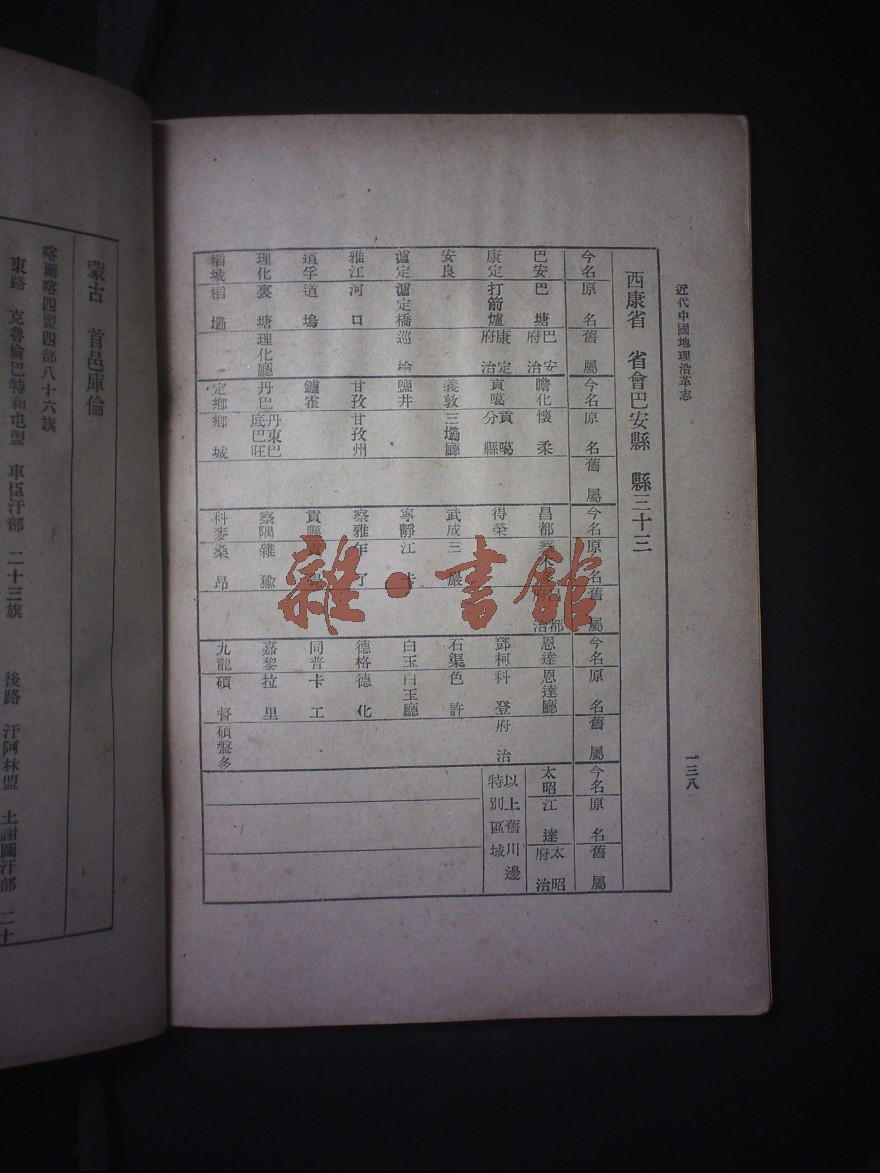 近代中國地理沿革志
一三八
西康省 省會巴安縣 縣三十三
今名 原名 舊屬 今名 原名 舊屬 今名 原名 舊屬 今名 原名 舊屬 今名 原名 舊屬
巴安 巴塘 巴安府治 瞻化 懷柔 昌都 昌都 治 恩達 恩達廳 太昭 江達 太昭府治
康定 打箭爐 康定府治 貢噶 貢噶分縣 得榮 鄧柯 科登 府治 以上舊川邊特別區域
安良 義敦 三壩廳 武成 三巖 石渠 色許
瀘定 瀘定橋 巡檢 鹽井 寧靜 江卡 白玉 白玉廳
雅江 河口 甘孜 甘孜州 察雅 乍了 德格 德化
道孚 道塢 鑪霍 貢 同普 卡工
理化 裏塘 理化廳 丹巴 丹東巴底巴旺 察隅 雜瑜 嘉黎 拉里
稻城 稻壩 定鄉 鄉城 科麥 桑昂 九龍 碩督 碩盤多
蒙古 首邑庫倫
喀爾喀四盟四部八十六旗
東路 克魯倫巴特和屯盟 車臣汗部 二十三旗 後路 汗阿林盟 土謝圖汗部 二十
雜·書館